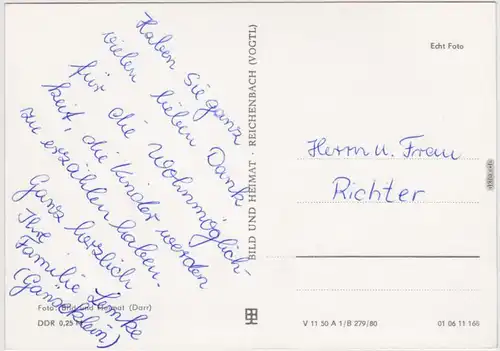 Haben Sie ganz
vielen lieben Dank
für die Wohnmöglich-
keit, die Kinder werden
zu erzählen haben.
Ganz herzlich
Ihre
Familie Lemke
(Gänseklein)
Foto: Bild und Heimat (Darr)
DDR 0,25 M
BILD UND HEIMAT · REICHENBACH (VOGTL)
Echt Foto
Herrn u. Frau
Richter
V 11 50 A 1/B 279/80
01 06 11 166